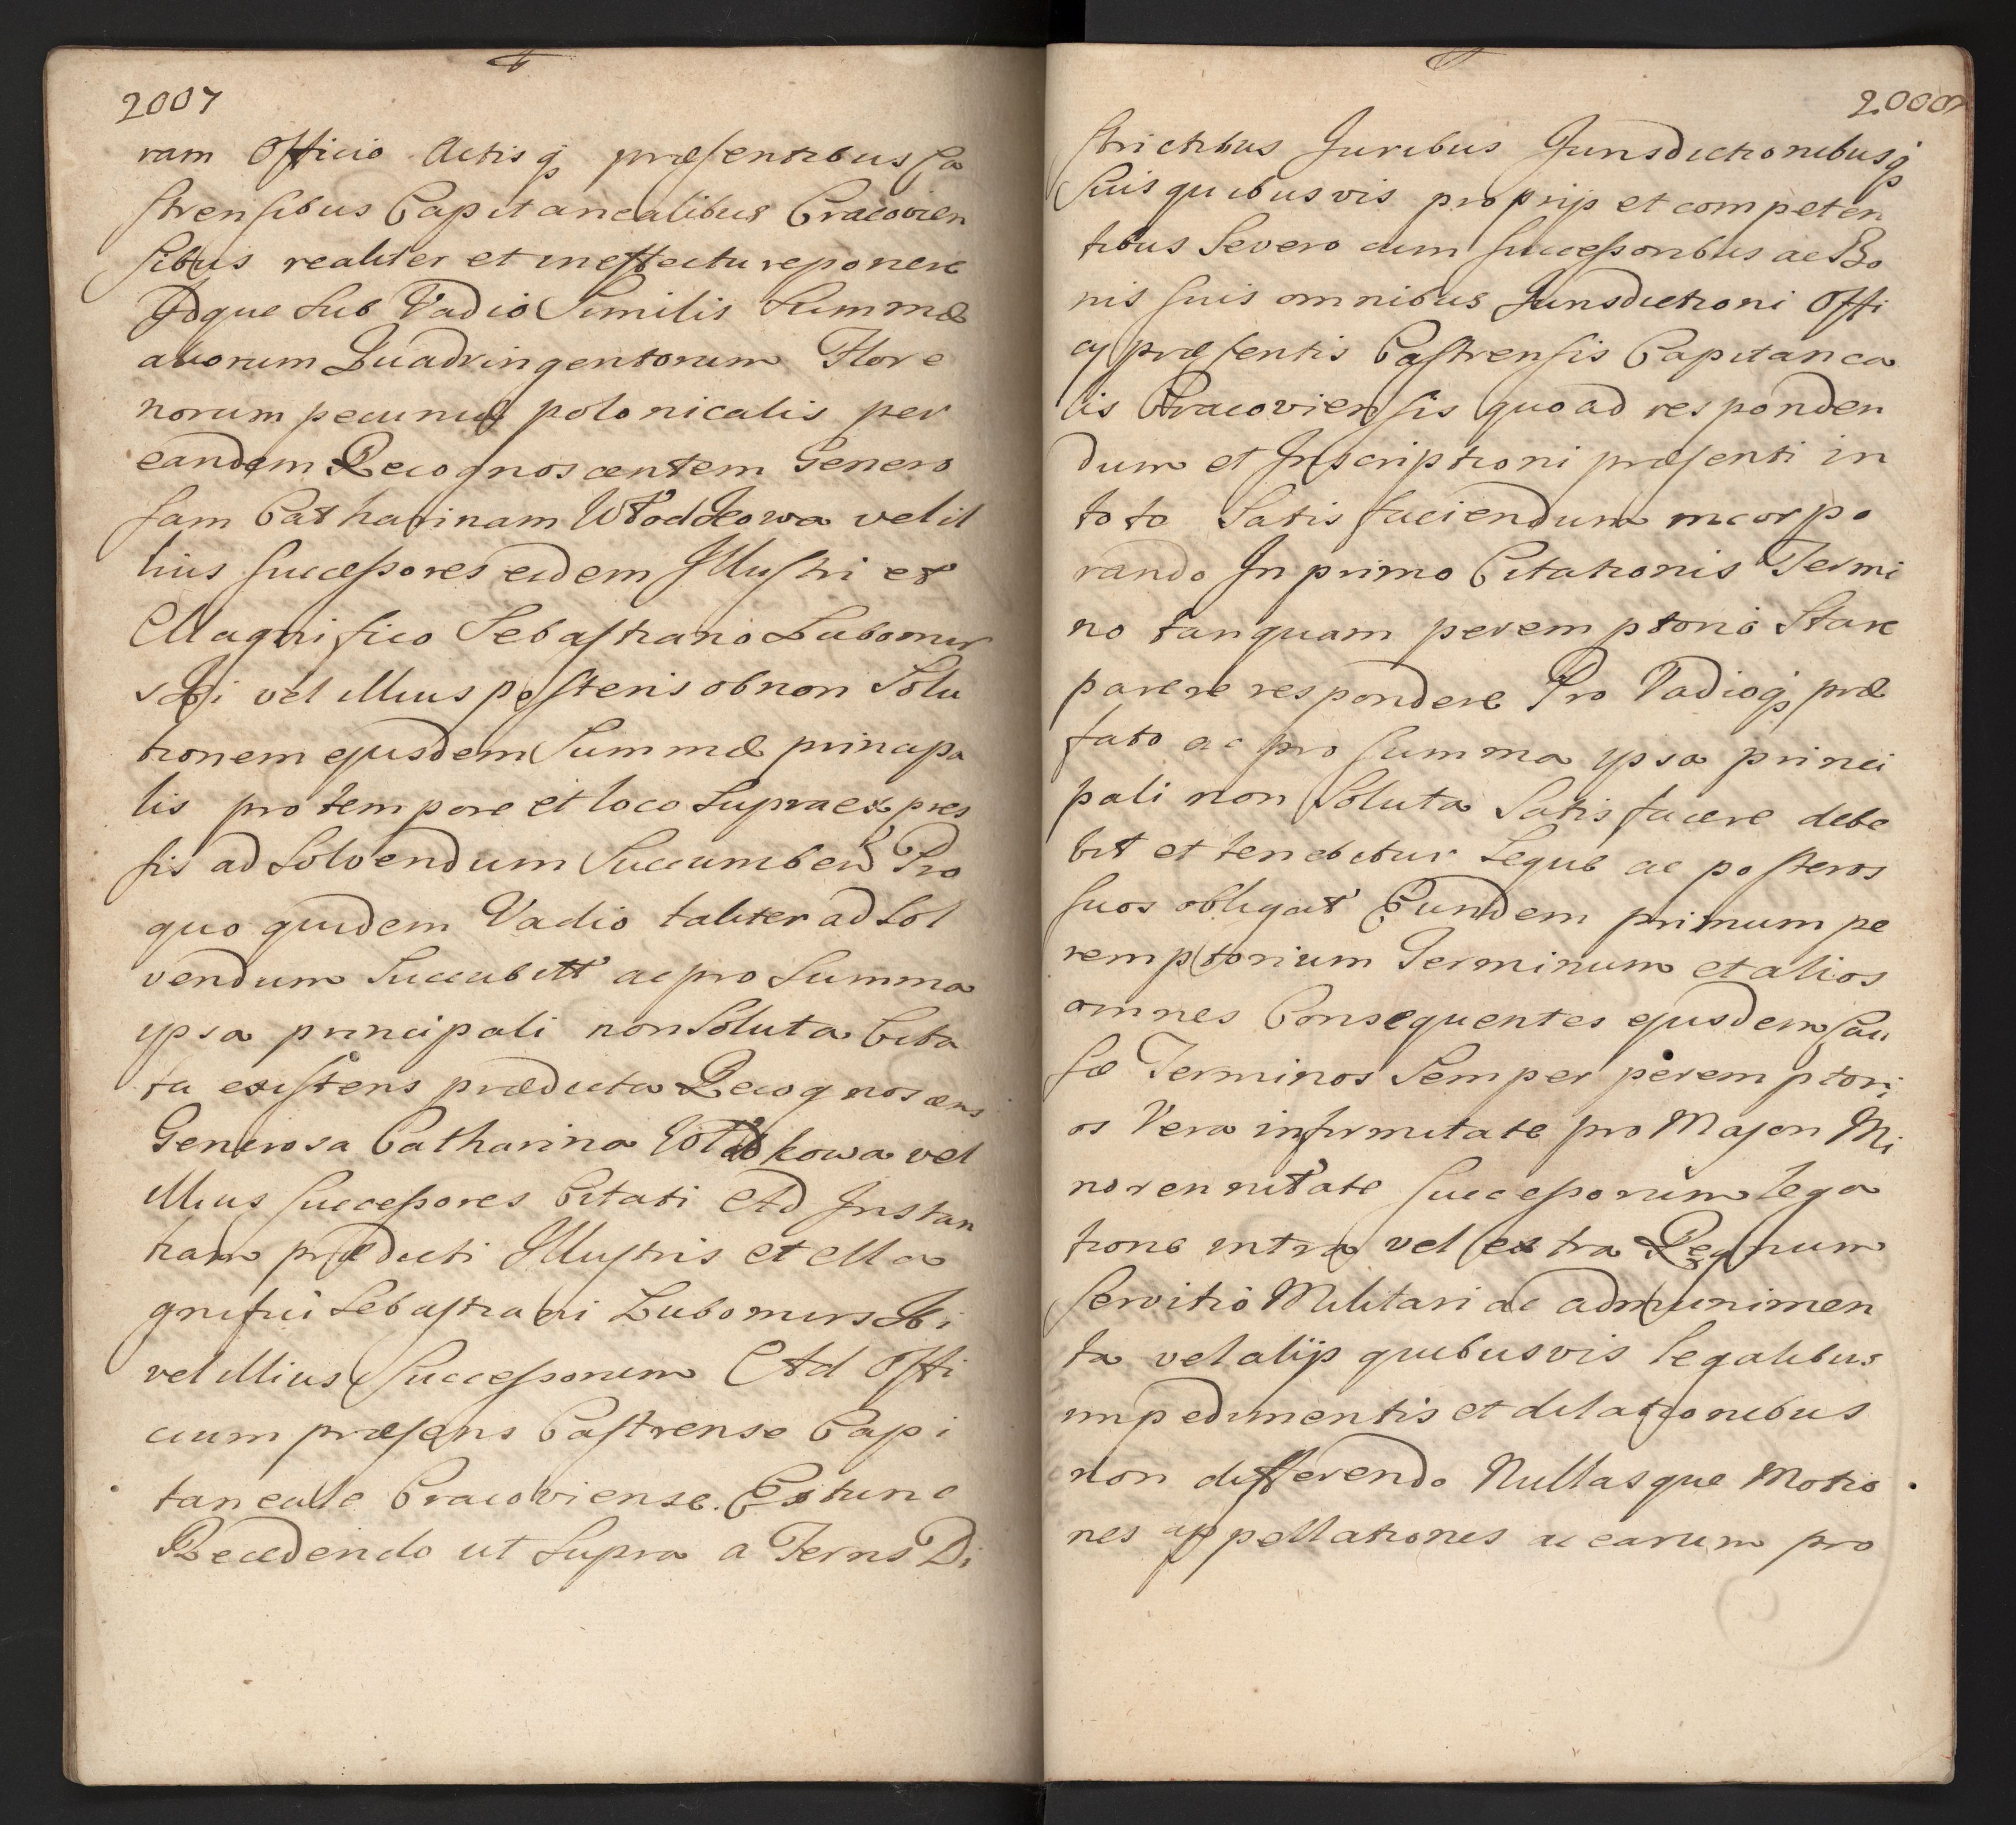 2007
ram Officio Actisq̃ præsentibus Ca
strensibus Capitanealibus Cracovien
sibus realiter et in effectu reponere
Idque sub Vadio Similis Summæ
aliorum Quadringentorum Flore
norum pecuniæ polonicalis per
eandem Recognoscentem Genero
sam Catharinam Włodkowa vel il
lius successores eidem Illustri et
Magnifico Sebastiano Lubomir
ski vel illius posteris ob non Solu
tionem ejusdem Summæ principa
lis pro tempore et loco supra expres
sis ad solvendum Succumben̄ Pro
quo quidem Vadio taliter ad sol
vendum Succubitt ac pro Summa
ypsa principali non Soluta Cita
ta existens prædicta Recognoscens
Generosa Catharina Włodkowa vel
illius successores Citati Ad Instan
tiam prædicti Illustris et Ma
gnifici Sebastiani Lubomirski
vel illius Successorum Ad Offi
cium præsens Castrense Capi
taneale Cracoviense. Ex tunc
Recedendo ut supra a Terris Di
2008
strictibus Juribus Jurisdictionibusq̃
suis quibusvis proprijs et competen
tibus Severo cum successoribus ac Bo
nis suis omnibus Jurisdictioni Offi
cij præsentis Castrensis Capitanea
lis Cracoviensis quoad responden
dum et Inscriptioni præsenti in
toto Satisfaciendum incorpo
rando In primo Citationis Termi
no tanquam peremptorio Stare
parere respondere Pro Vadioq̃ præ
fato ac pro summa ypsa princi
pali non Soluta Satisfacere debe
bit et tenebitur Seque ac posteros
suos obligat Eundem primum pe
remptorium Terminum et alios
omnes Consequentes ejusdem Cau
sæ Terminos Semper peremptori
os Vera infirmitate pro Majori Mi
norennitate successorum lega
tione intra vel extra Regnum
servitio Militari ac admunimen
ta vel alijs quibusvis legalibus
impedimentis et dilationibus
non differendo Nullasque Motio
nes appellationes ac earum pro